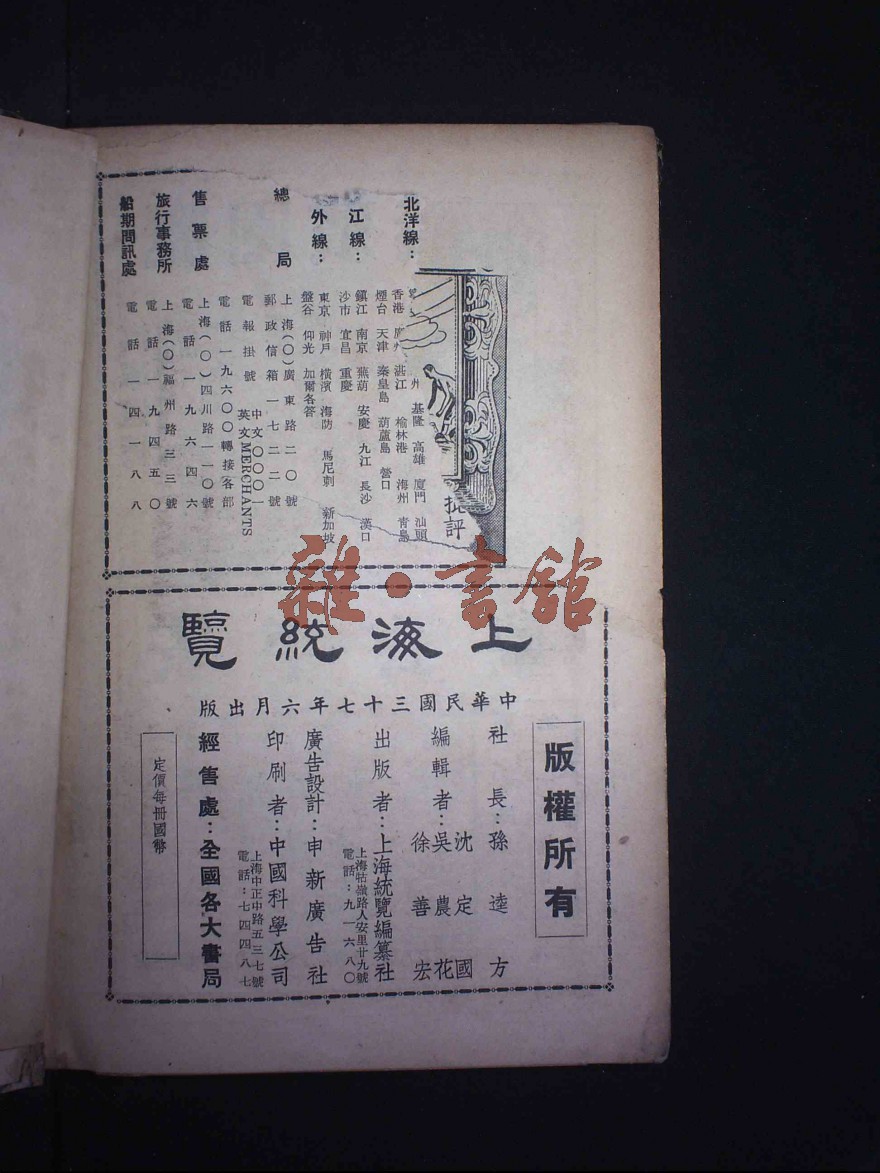 批評
北洋線：
州 基隆 高雄 廈門 汕頭
香港 廣州 湛江 榆林港 海州 青島
煙台 天津 秦皇島 葫蘆島 營口
江線：
鎮江 南京 蕪葫 安慶 九江 長沙 漢口
沙市 宜昌 重慶
外線：
東京 神戶 橫濱 海防 馬尼剌 新加坡
盤谷 仰光 加爾各答
總局
上海(〇)廣東路二〇號
郵政信箱一七二二號
電報掛號 中文〇〇〇一
英文MERCHANTS
電話一九六〇〇轉接各部
售票處
上海(〇)四川路一一〇號
電話一九六四六
旅行事務所
上海(〇)福州路三三號
電話一九四五〇
船期問訊處
電話一四一八八
雜·書舘
上海統覽
中華民國三十七年六月出版
版權所有
社長：孫逵方
編輯者：沈定國
吳農花
徐善宏
出版者：上海統覽編纂社
上海牯嶺路人安里廿九號
電話：九一六八〇
廣告設計：申新廣告社
印刷者：中國科學公司
上海中正中路五三七號
電話：七四四八七
經售處：全國各大書局
定價每冊國幣